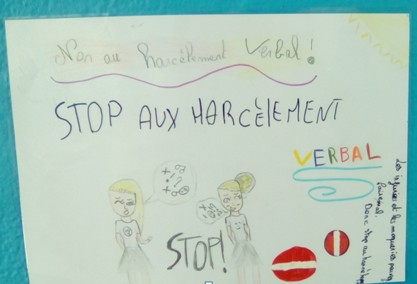 Non au harcèlement Verbal !
STOP AUX HARCÈLEMENT
VERBAL
STOP!
Les injures et les moqueries
Donc stop au